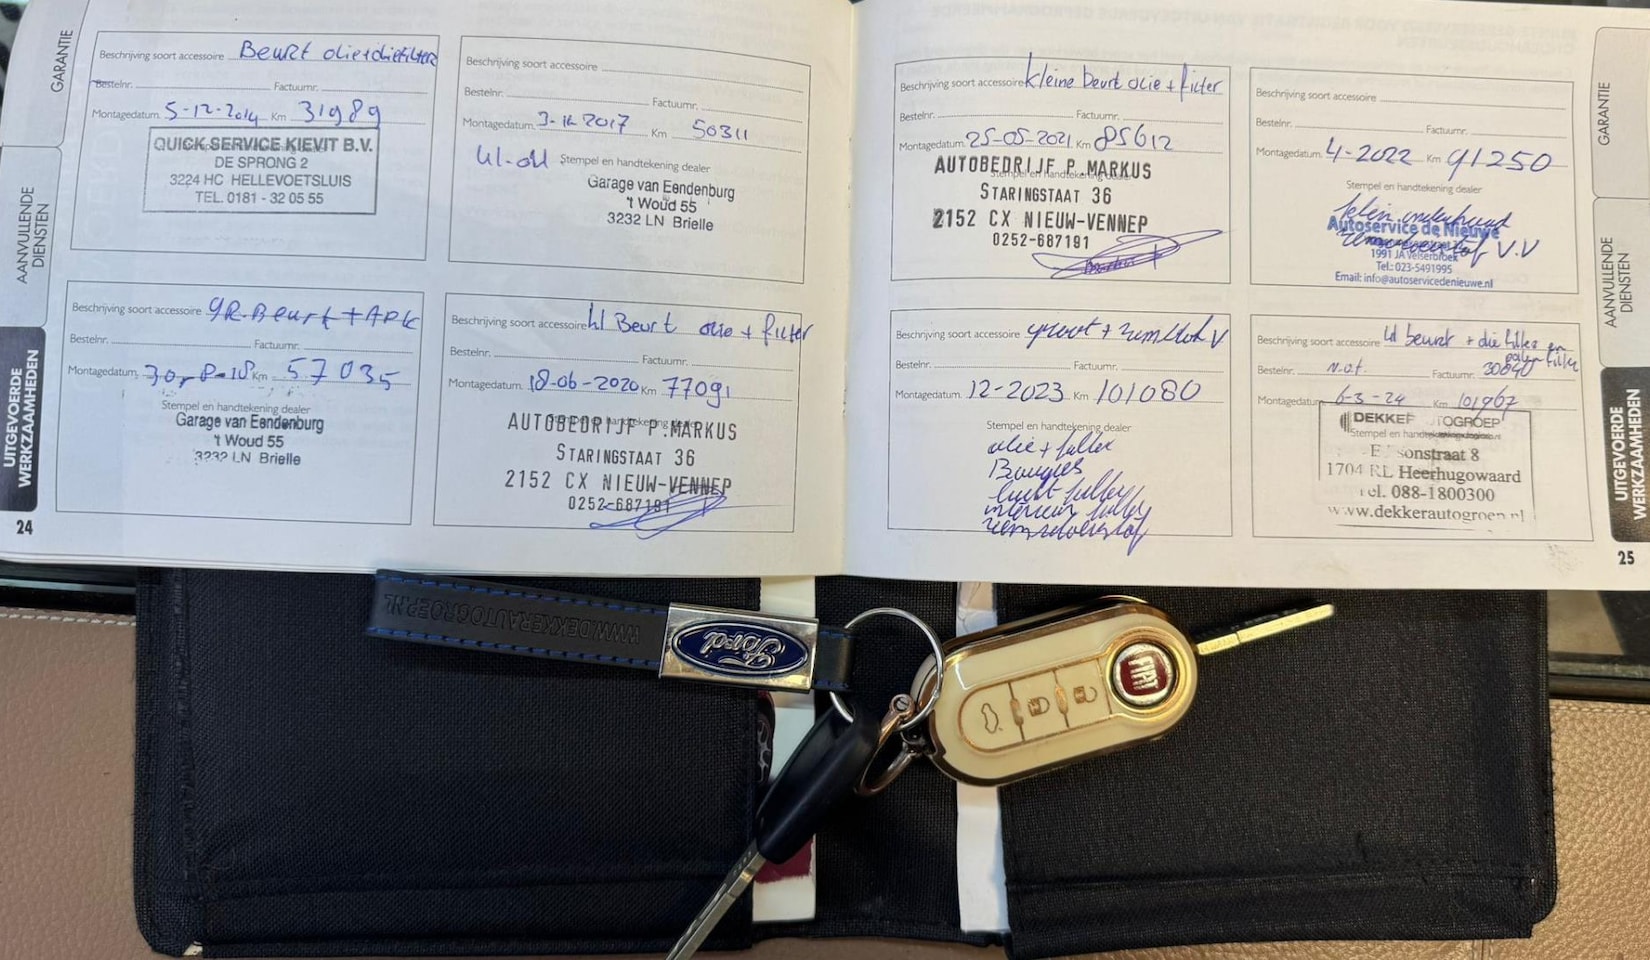 GARANTIE
AANVULLENDE
DIENSTEN
UITGEVOERDE
WERKZAAMHEDEN
24
Beschrijving soort accessoire Beurt olie+oliefilter
Bestelnr. Factuurnr.
Montagedatum 5-12-2014 Km 31989
QUICK SERVICE KIEVIT B.V.
DE SPRONG 2
3224 HC HELLEVOETSLUIS
TEL. 0181 - 32 05 55
Beschrijving soort accessoire
Bestelnr. Factuurnr.
Montagedatum 2017 Km 50311
Stempel en handtekening dealer
Garage van Eendenburg
't Woud 55
3232 LN Brielle
Beschrijving soort accessoire GR. Beurt + APK
Bestelnr. Factuurnr.
Montagedatum 30-8-18 Km 57035
Stempel en handtekening dealer
Garage van Eendenburg
't Woud 55
3232 LN Brielle
Beschrijving soort accessoire kl Beurt olie + filter
Bestelnr. Factuurnr.
Montagedatum 18-06-2020 Km 77091
AUTOBEDRIJF P.MARKUS
STARINGSTAAT 36
2152 CX NIEUW-VENNEP
0252-687191
Beschrijving soort accessoire kleine beurt olie + filter
Bestelnr. Factuurnr.
Montagedatum 25-05-2021 Km 85612
AUTOBEDRIJF P.MARKUS
STARINGSTAAT 36
2152 CX NIEUW-VENNEP
0252-687191
Beschrijving soort accessoire
Bestelnr. Factuurnr.
Montagedatum 4-2022 Km 91250
Stempel en handtekening dealer
klein onderhoud
Autoservice de Nieuwe
remvloeistof V.V
1991 JA Velserbroek
Tel.: 023-5491995
Email: info@autoservicedenieuwe.nl
Beschrijving soort accessoire groot +
Bestelnr. Factuurnr.
Montagedatum 12-2023 Km 101080
Stempel en handtekening dealer
olie + filter
Bougies
lucht filter
interieur filter
remvloeistof
Beschrijving soort accessoire kl beurt + olie filter en
pollen filter
Bestelnr. n.o.t. Factuurnr. 30840
Montagedatum 6-3-24 Km 101967
DEKKER AUTOGROEP
Stempel en handtekening dealer
sonstraat 8
1704 RL Heerhugowaard
Tel. 088-1800300
www.dekkerautogroep.nl
GARANTIE
AANVULLENDE
DIENSTEN
UITGEVOERDE
WERKZAAMHEDEN
25
WWW.DEKKERAUTOGROEP.NL
Ford
FIAT